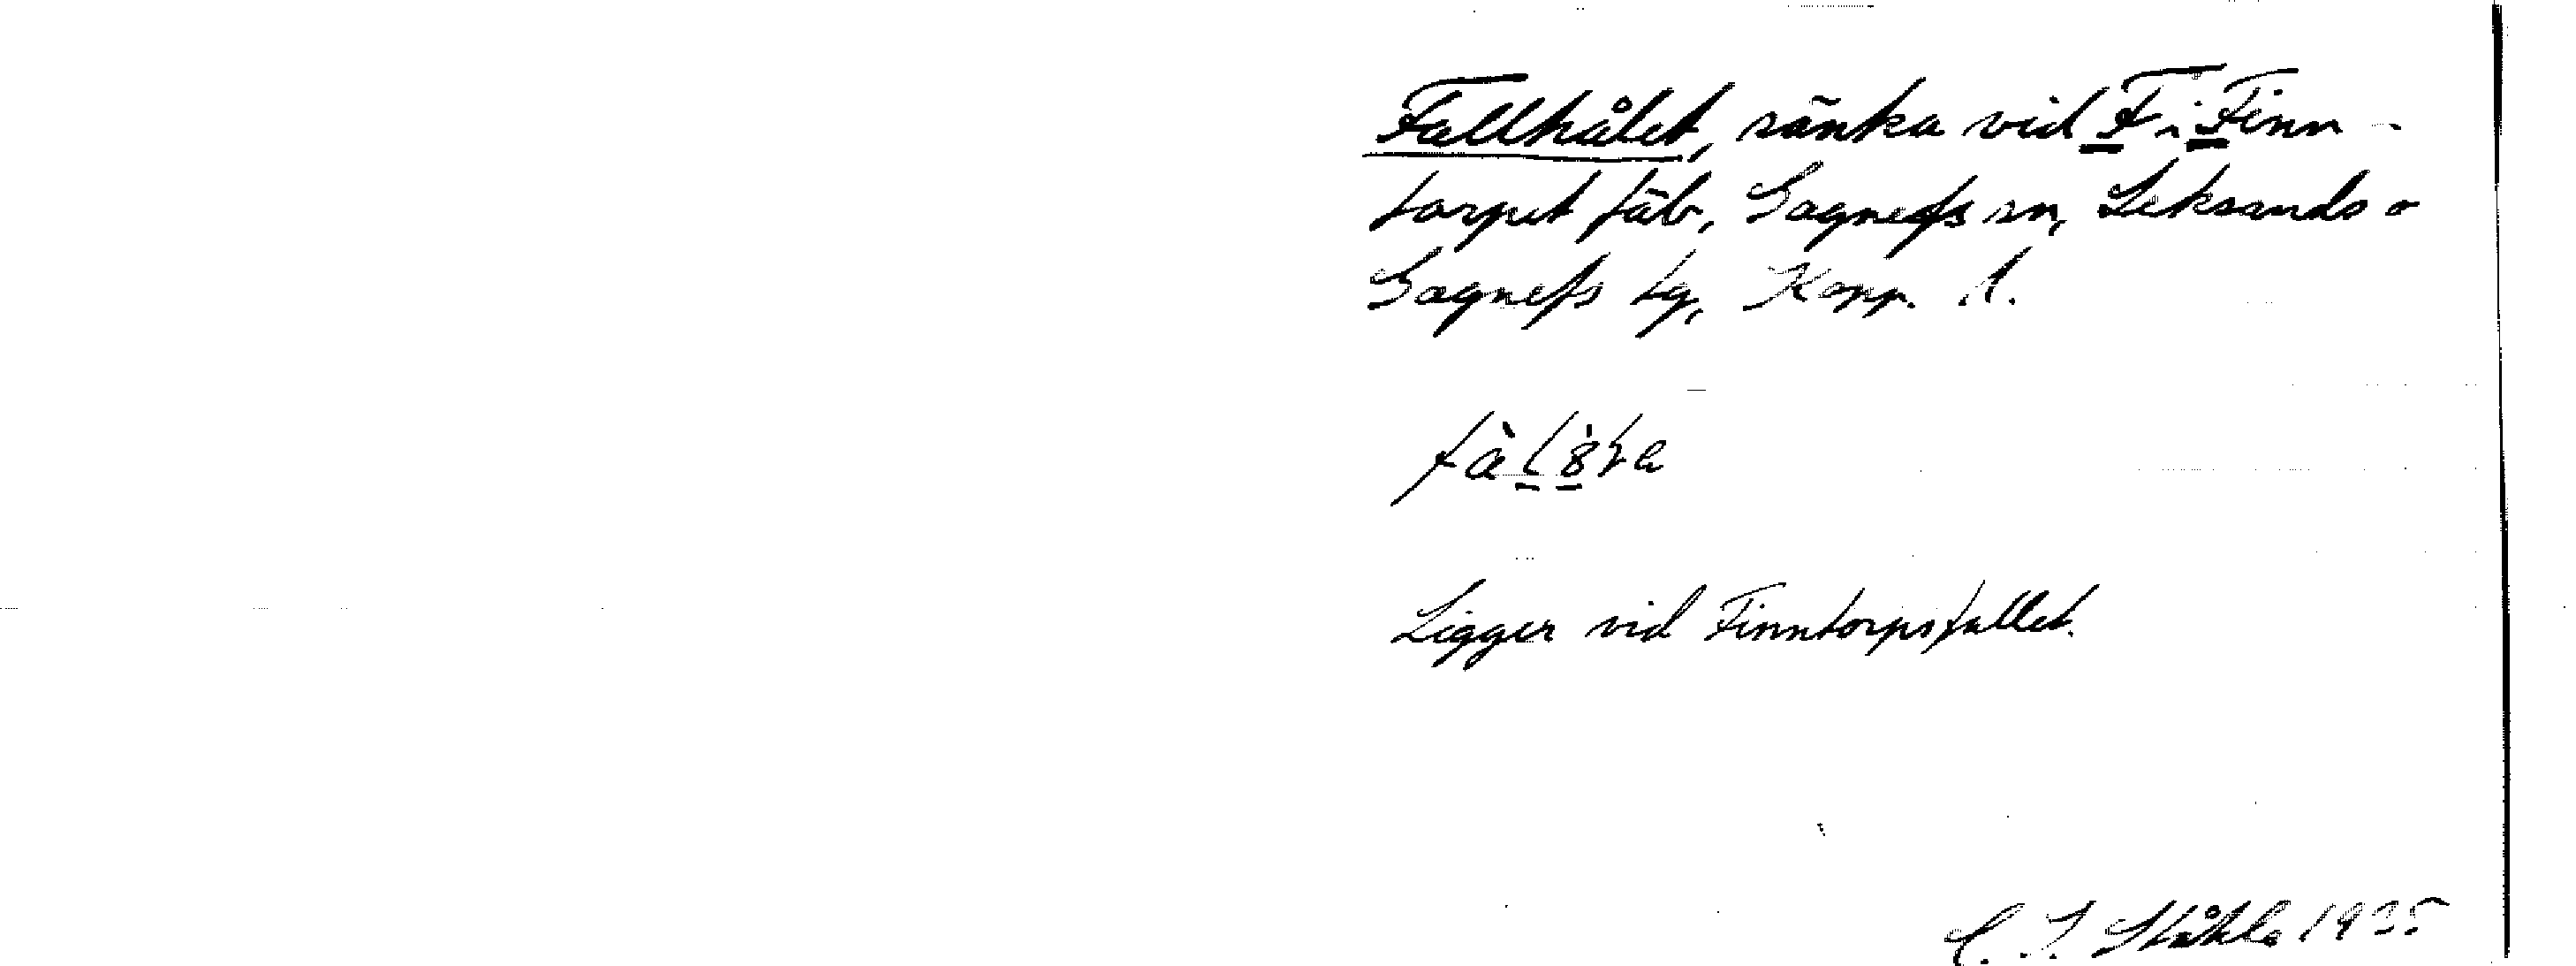 Fallhålet, sänka vid F i Finn-
torpet fäb, Gagnefs sn, Leksands o
Gagnefs tg, Kopp. l.
Ligger vid Finntorpsfallet.
C. I. Ståhle 1935